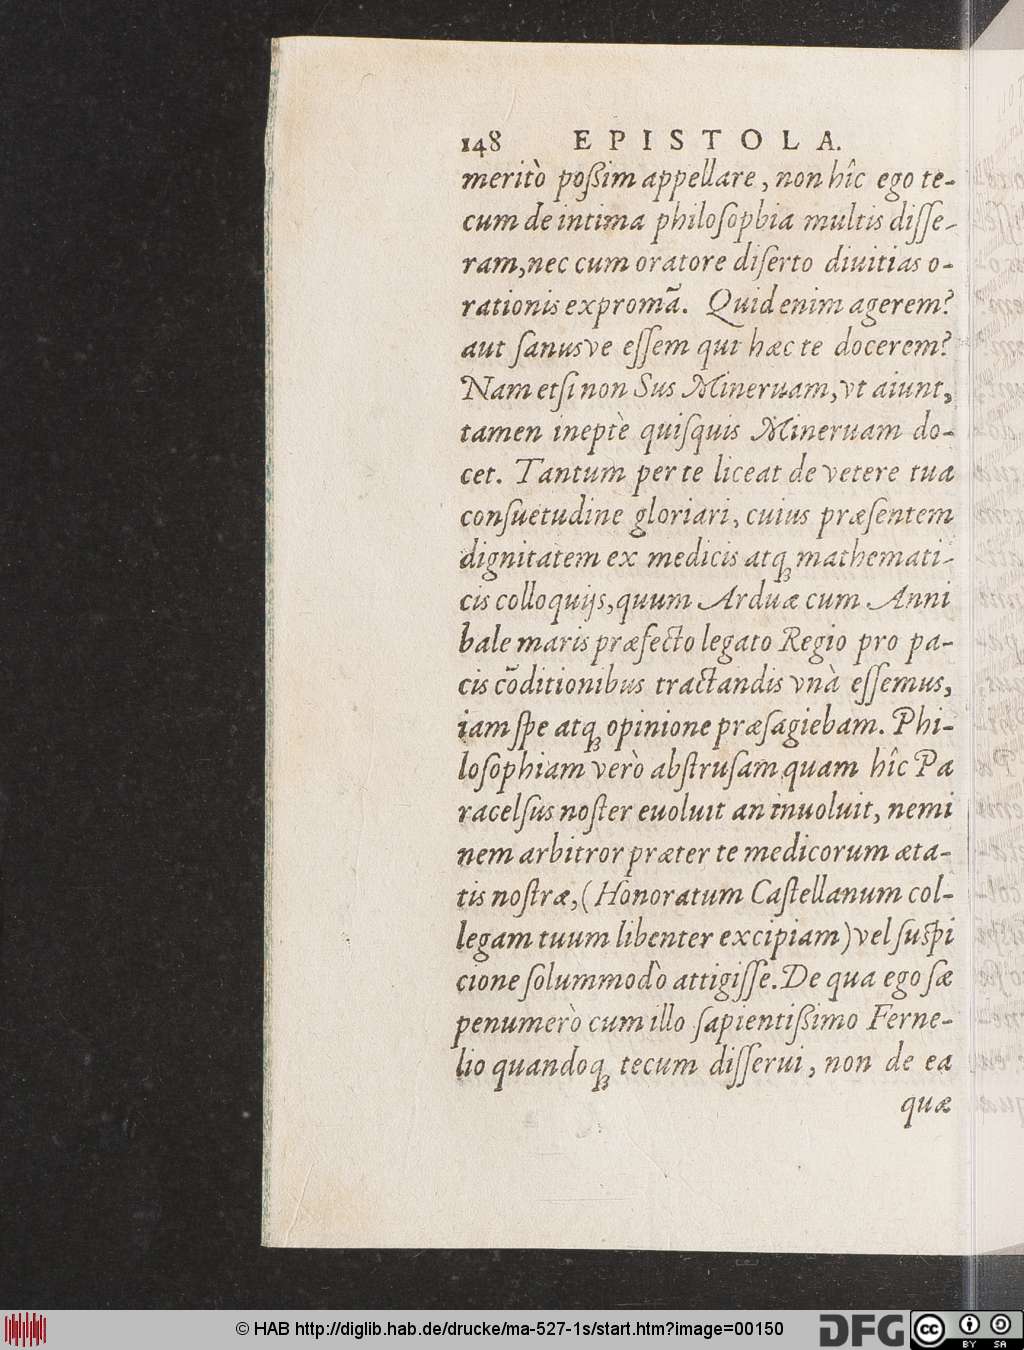 148 EPISTOLA.
meritò poßim appellare, non hîc ego te-
cum de intima philosophia multis disse-
ram, nec cum oratore diserto diuitias o-
rationis expromā. Quid enim agerem?
aut sanusve essem qui hæc te docerem?
Nam etsi non Sus Mineruam, vt aiunt,
tamen ineptè quisquis Mineruam do-
cet. Tantum per te liceat de vetere tua
consuetudine gloriari, cuius præsentem
dignitatem ex medicis atq; mathemati-
cis colloquijs, quum Arduæ cum Anni
bale maris præfecto legato Regio pro pa-
cis cōditionibus tractandis vnà essemus,
iam spe atq; opinione præsagiebam. Phi-
losophiam verò abstrusam quam hîc Pa
racelsus noster euoluit an inuoluit, nemi
nem arbitror præter te medicorum æta-
tis nostræ, (Honoratum Castellanum col-
legam tuum libenter excipiam) vel suspi
cione solummodò attigisse. De qua ego sæ
penumerò cum illo sapientißimo Ferne-
lio quandoq; tecum disserui, non de ea
quæ
© HAB http://diglib.hab.de/drucke/ma-527-1s/start.htm?image=00150
DFG
cc BY SA